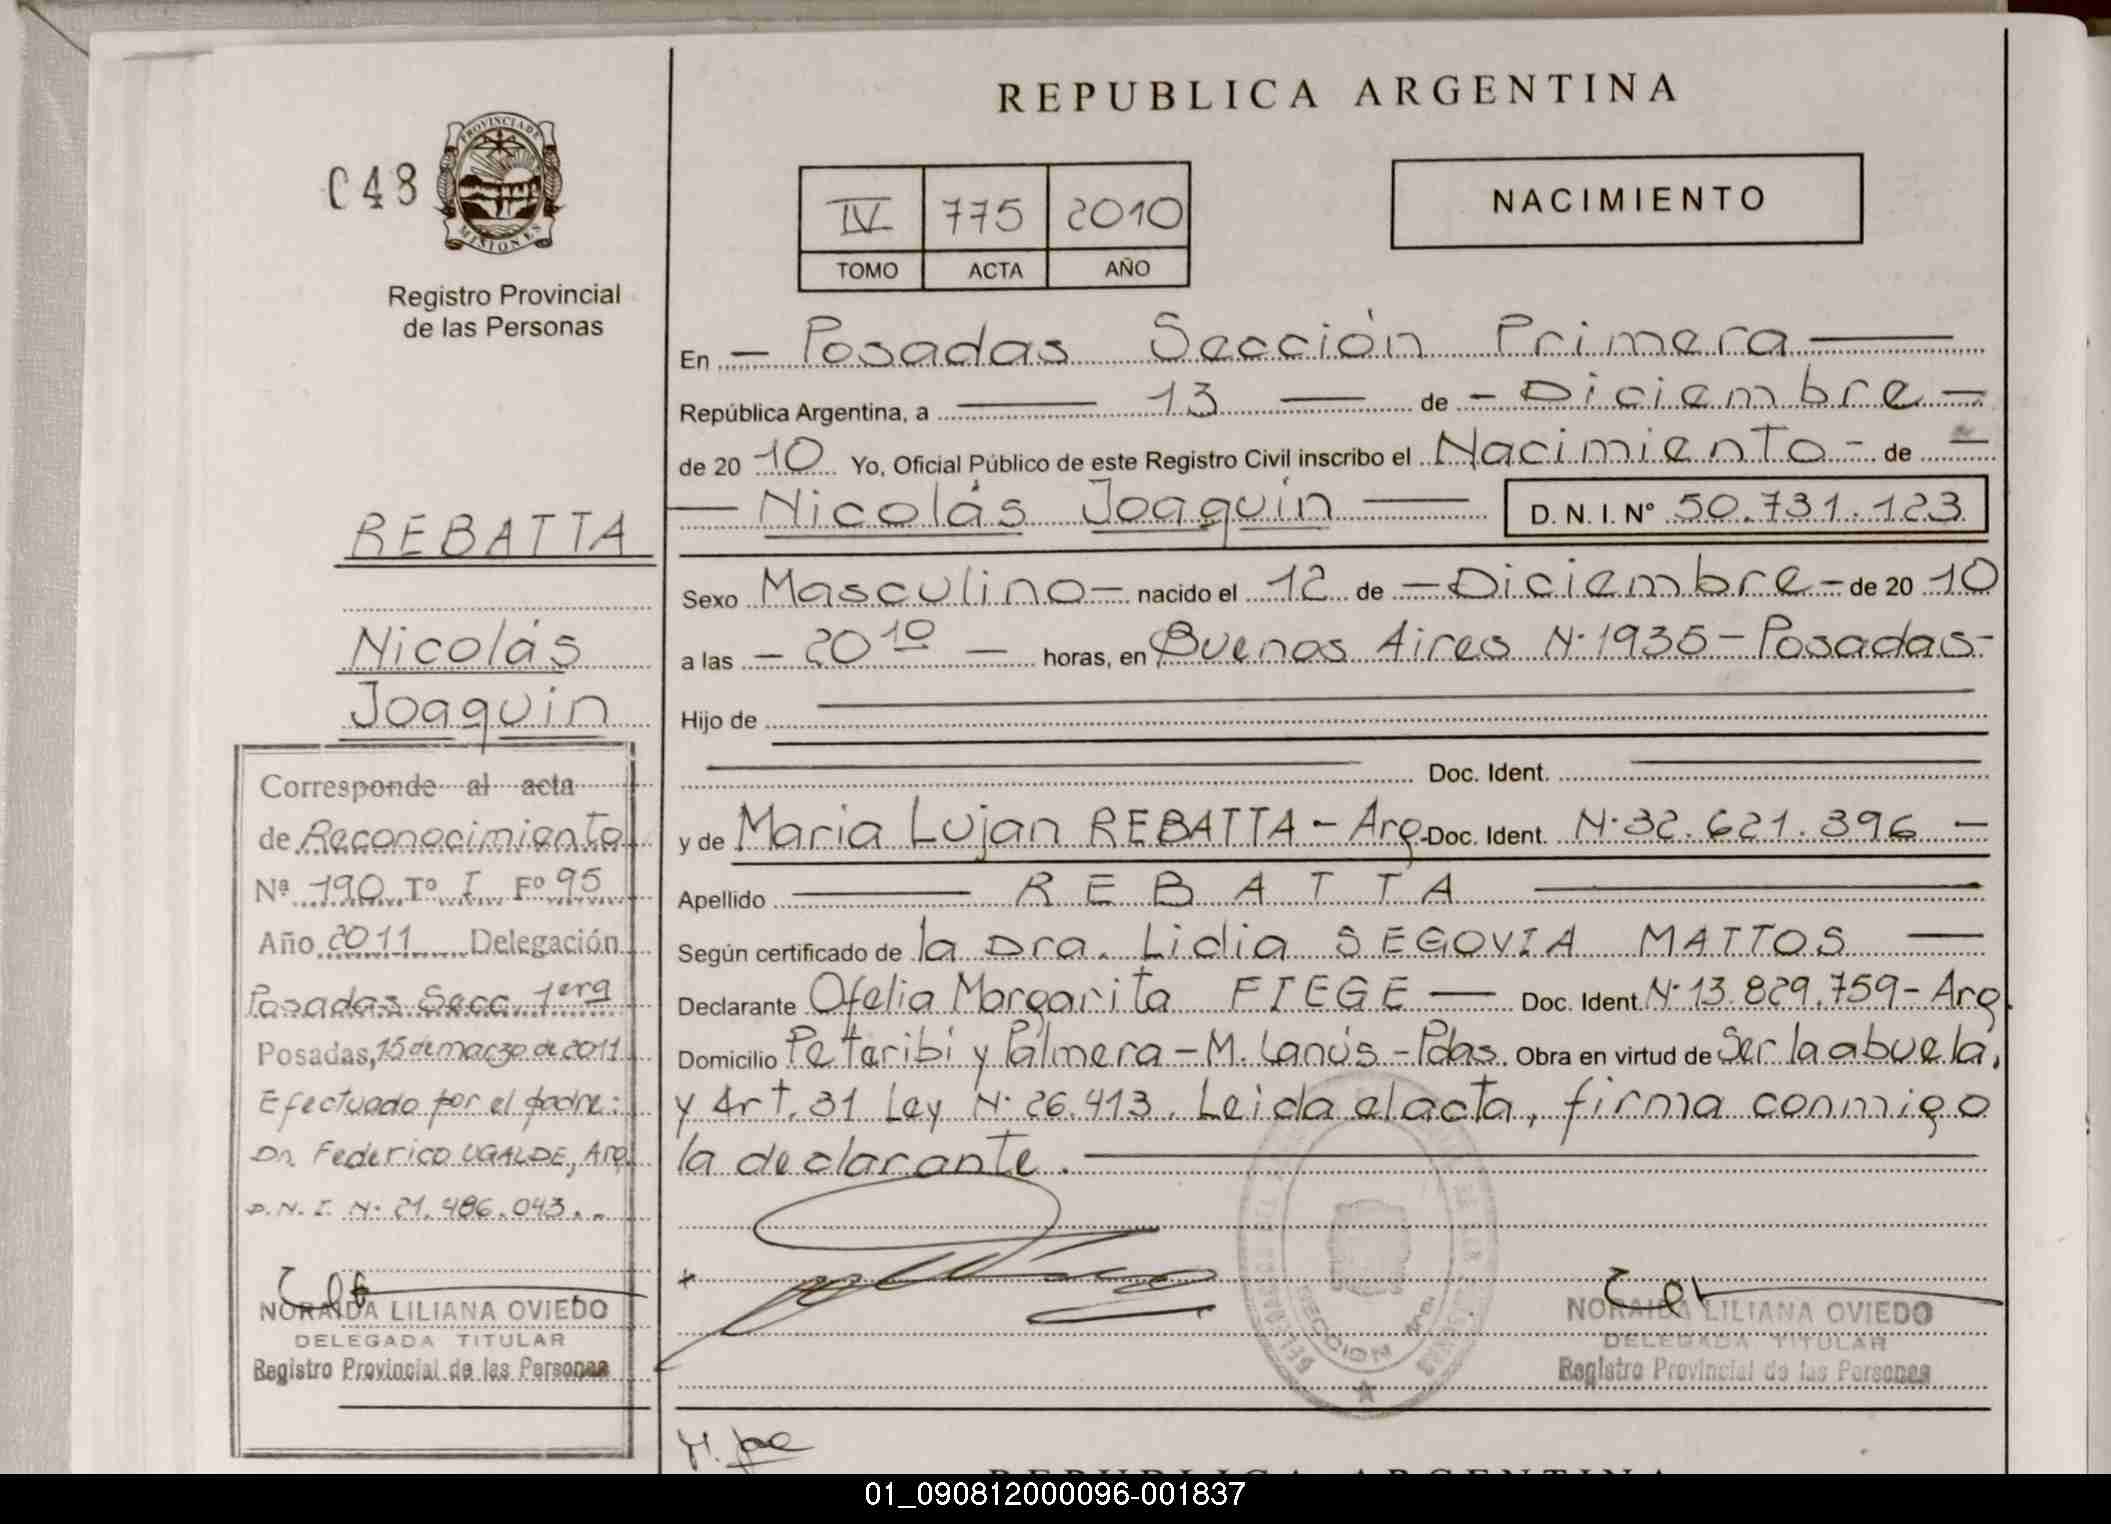 REPUBLICA ARGENTINA
048
PROVINCIA DE
MISIONES
Registro Provincial
de las Personas
IV 775 2010
TOMO ACTA AÑO
NACIMIENTO
En - Posadas Sección Primera
República Argentina, a 13 de - Diciembre -
de 20 10 Yo, Oficial Público de este Registro Civil inscribo el Nacimiento - de -
Nicolás Joaquín D. N. I. Nº 50.731.123
Sexo Masculino - nacido el 12 de - Diciembre - de 20 10
a las - 20 10 - horas, en Buenos Aires N· 1935 - Posadas -
Hijo de
Doc. Ident.
y de Maria Lujan REBATTA - Arg. Doc. Ident. N· 32.621.396 -
Apellido REBATTA
Según certificado de la Dra. Lidia SEGOVIA MATTOS
Declarante Ofelia Margarita FIEGE - Doc. Ident. N· 13.829.759 - Arg.
Domicilio Petiribí y Palmera - M. Lanús - Pdas. Obra en virtud de Ser la abuela,
y Art. 31 Ley N· 26.413. Leida el acta, firma conmigo
la declarante.
NORAIDA LILIANA OVIEDO
DELEGADA TITULAR
Registro Provincial de las Personas
REBATTA
Nicolás
Joaquín
Corresponde al acta
de Reconocimiento
Nº 190 Tº I Fº 95
Año 2011 Delegación
Posadas Secc. 1era
Posadas, 15 de marzo de 2011
Efectuado por el padre:
Dn. Federico UGALDE, Arg.
D.N.I. N· 21.486.043..
NORAIDA LILIANA OVIEDO
DELEGADA TITULAR
Registro Provincial de las Personas
REPUBLICA ARGENTINA
01_090812000096-001837